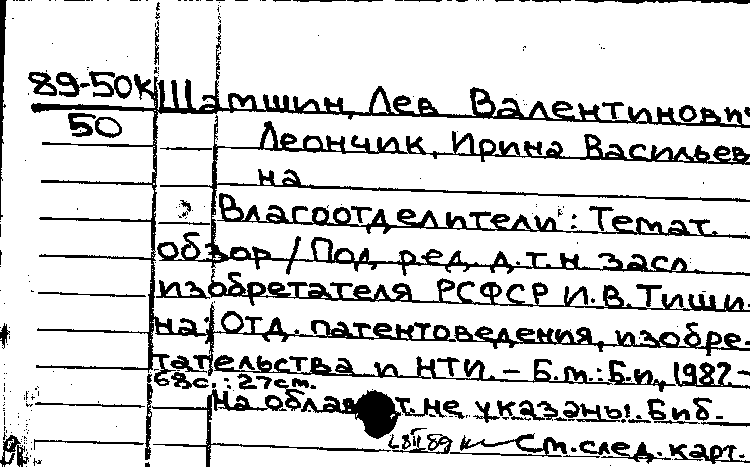 89-50К
50
Шамшин, Лев Валентинович
Леончик, Ирина Васильев
на
Влагоотделители: Темат.
обзор / Под ред. д.т.н. засл.
изобретателя РСФСР И.В. Тиши-
на; Отд. патентоведения, изобре-
тательства и НТИ. – Б.м.: Б.и., 1987 –
68с.: 27см.
На облав т. не указаны. Биб.
См. след. карт.